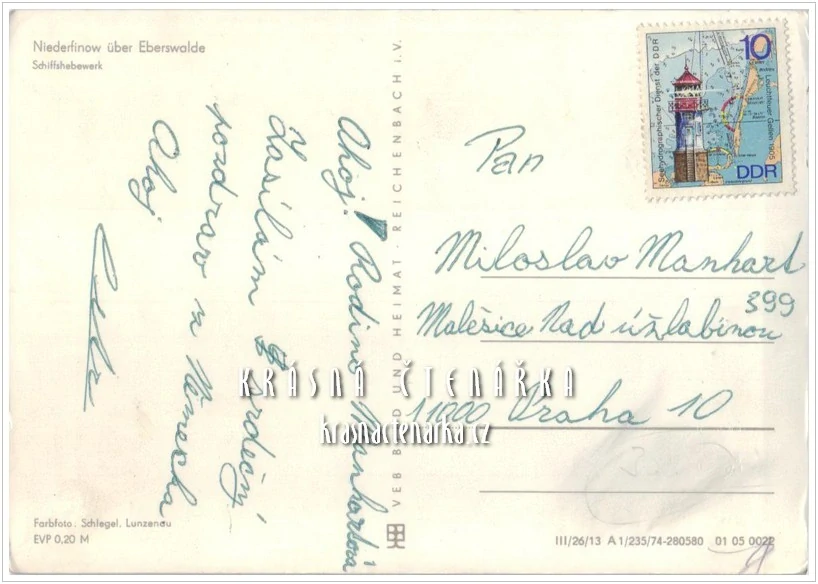 Niederfinow über Eberswalde
Schiffshebewerk
Ahoj! Rodino Manhartová
Zasílám srdečný
pozdrav z Německa
Ahoj
VEB BILD UND HEIMAT · REICHENBACH i.V.
Seehydrographischer Dienst der DDR
10
Leuchtfeuer Gellen 1905
DDR
Pan
Miloslav Manhart
399
Malešice Nad úžlabinou
11000 Praha 10
KRÁSNÁ ČTENÁŘKA
krasnactenarka.cz
Farbfoto: Schlegel, Lunzenau
EVP 0,20 M
III/26/13 A 1/235/74-280580 01 05 0022